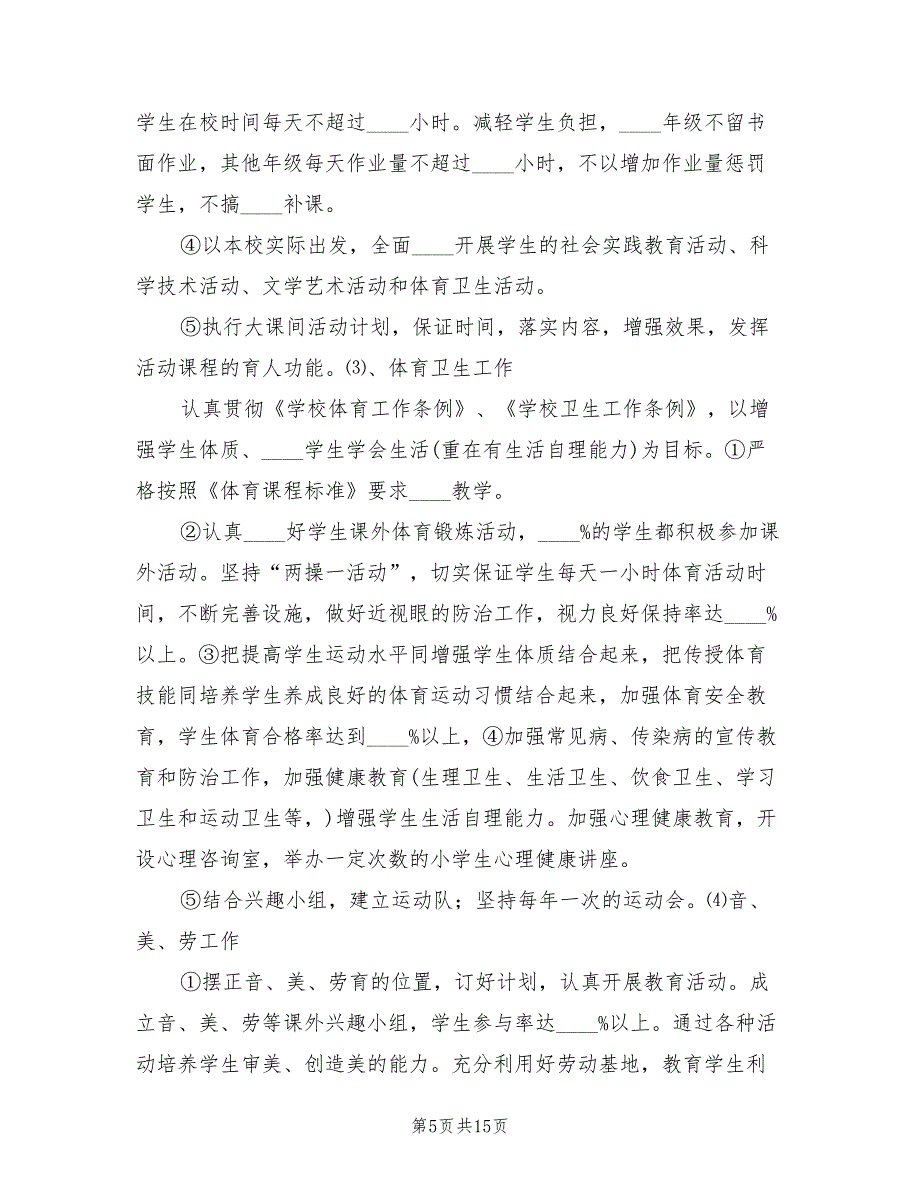 学生在校时间每天不超过____小时。减轻学生负担，____年级不留书
面作业，其他年级每天作业量不超过____小时，不以增加作业量惩罚
学生，不搞____补课。
④以本校实际出发，全面____开展学生的社会实践教育活动、科
学技术活动、文学艺术活动和体育卫生活动。
⑤执行大课间活动计划，保证时间，落实内容，增强效果，发挥
活动课程的育人功能。⑶、体育卫生工作
认真贯彻《学校体育工作条例》、《学校卫生工作条例》，以增
强学生体质、____学生学会生活(重在有生活自理能力)为目标。①严
格按照《体育课程标准》要求____教学。
②认真____好学生课外体育锻炼活动，____%的学生都积极参加课
外活动。坚持“两操一活动”，切实保证学生每天一小时体育活动时
间，不断完善设施，做好近视眼的防治工作，视力良好保持率达____%
以上。③把提高学生运动水平同增强学生体质结合起来，把传授体育
技能同培养学生养成良好的体育运动习惯结合起来，加强体育安全教
育，学生体育合格率达到____%以上，④加强常见病、传染病的宣传教
育和防治工作，加强健康教育(生理卫生、生活卫生、饮食卫生、学习
卫生和运动卫生等，)增强学生生活自理能力。加强心理健康教育，开
设心理咨询室，举办一定次数的小学生心理健康讲座。
⑤结合兴趣小组，建立运动队；坚持每年一次的运动会。⑷音、
美、劳工作
①摆正音、美、劳育的位置，订好计划，认真开展教育活动。成
立音、美、劳等课外兴趣小组，学生参与率达____%以上。通过各种活
动培养学生审美、创造美的能力。充分利用好劳动基地，教育学生利
第5页共15页